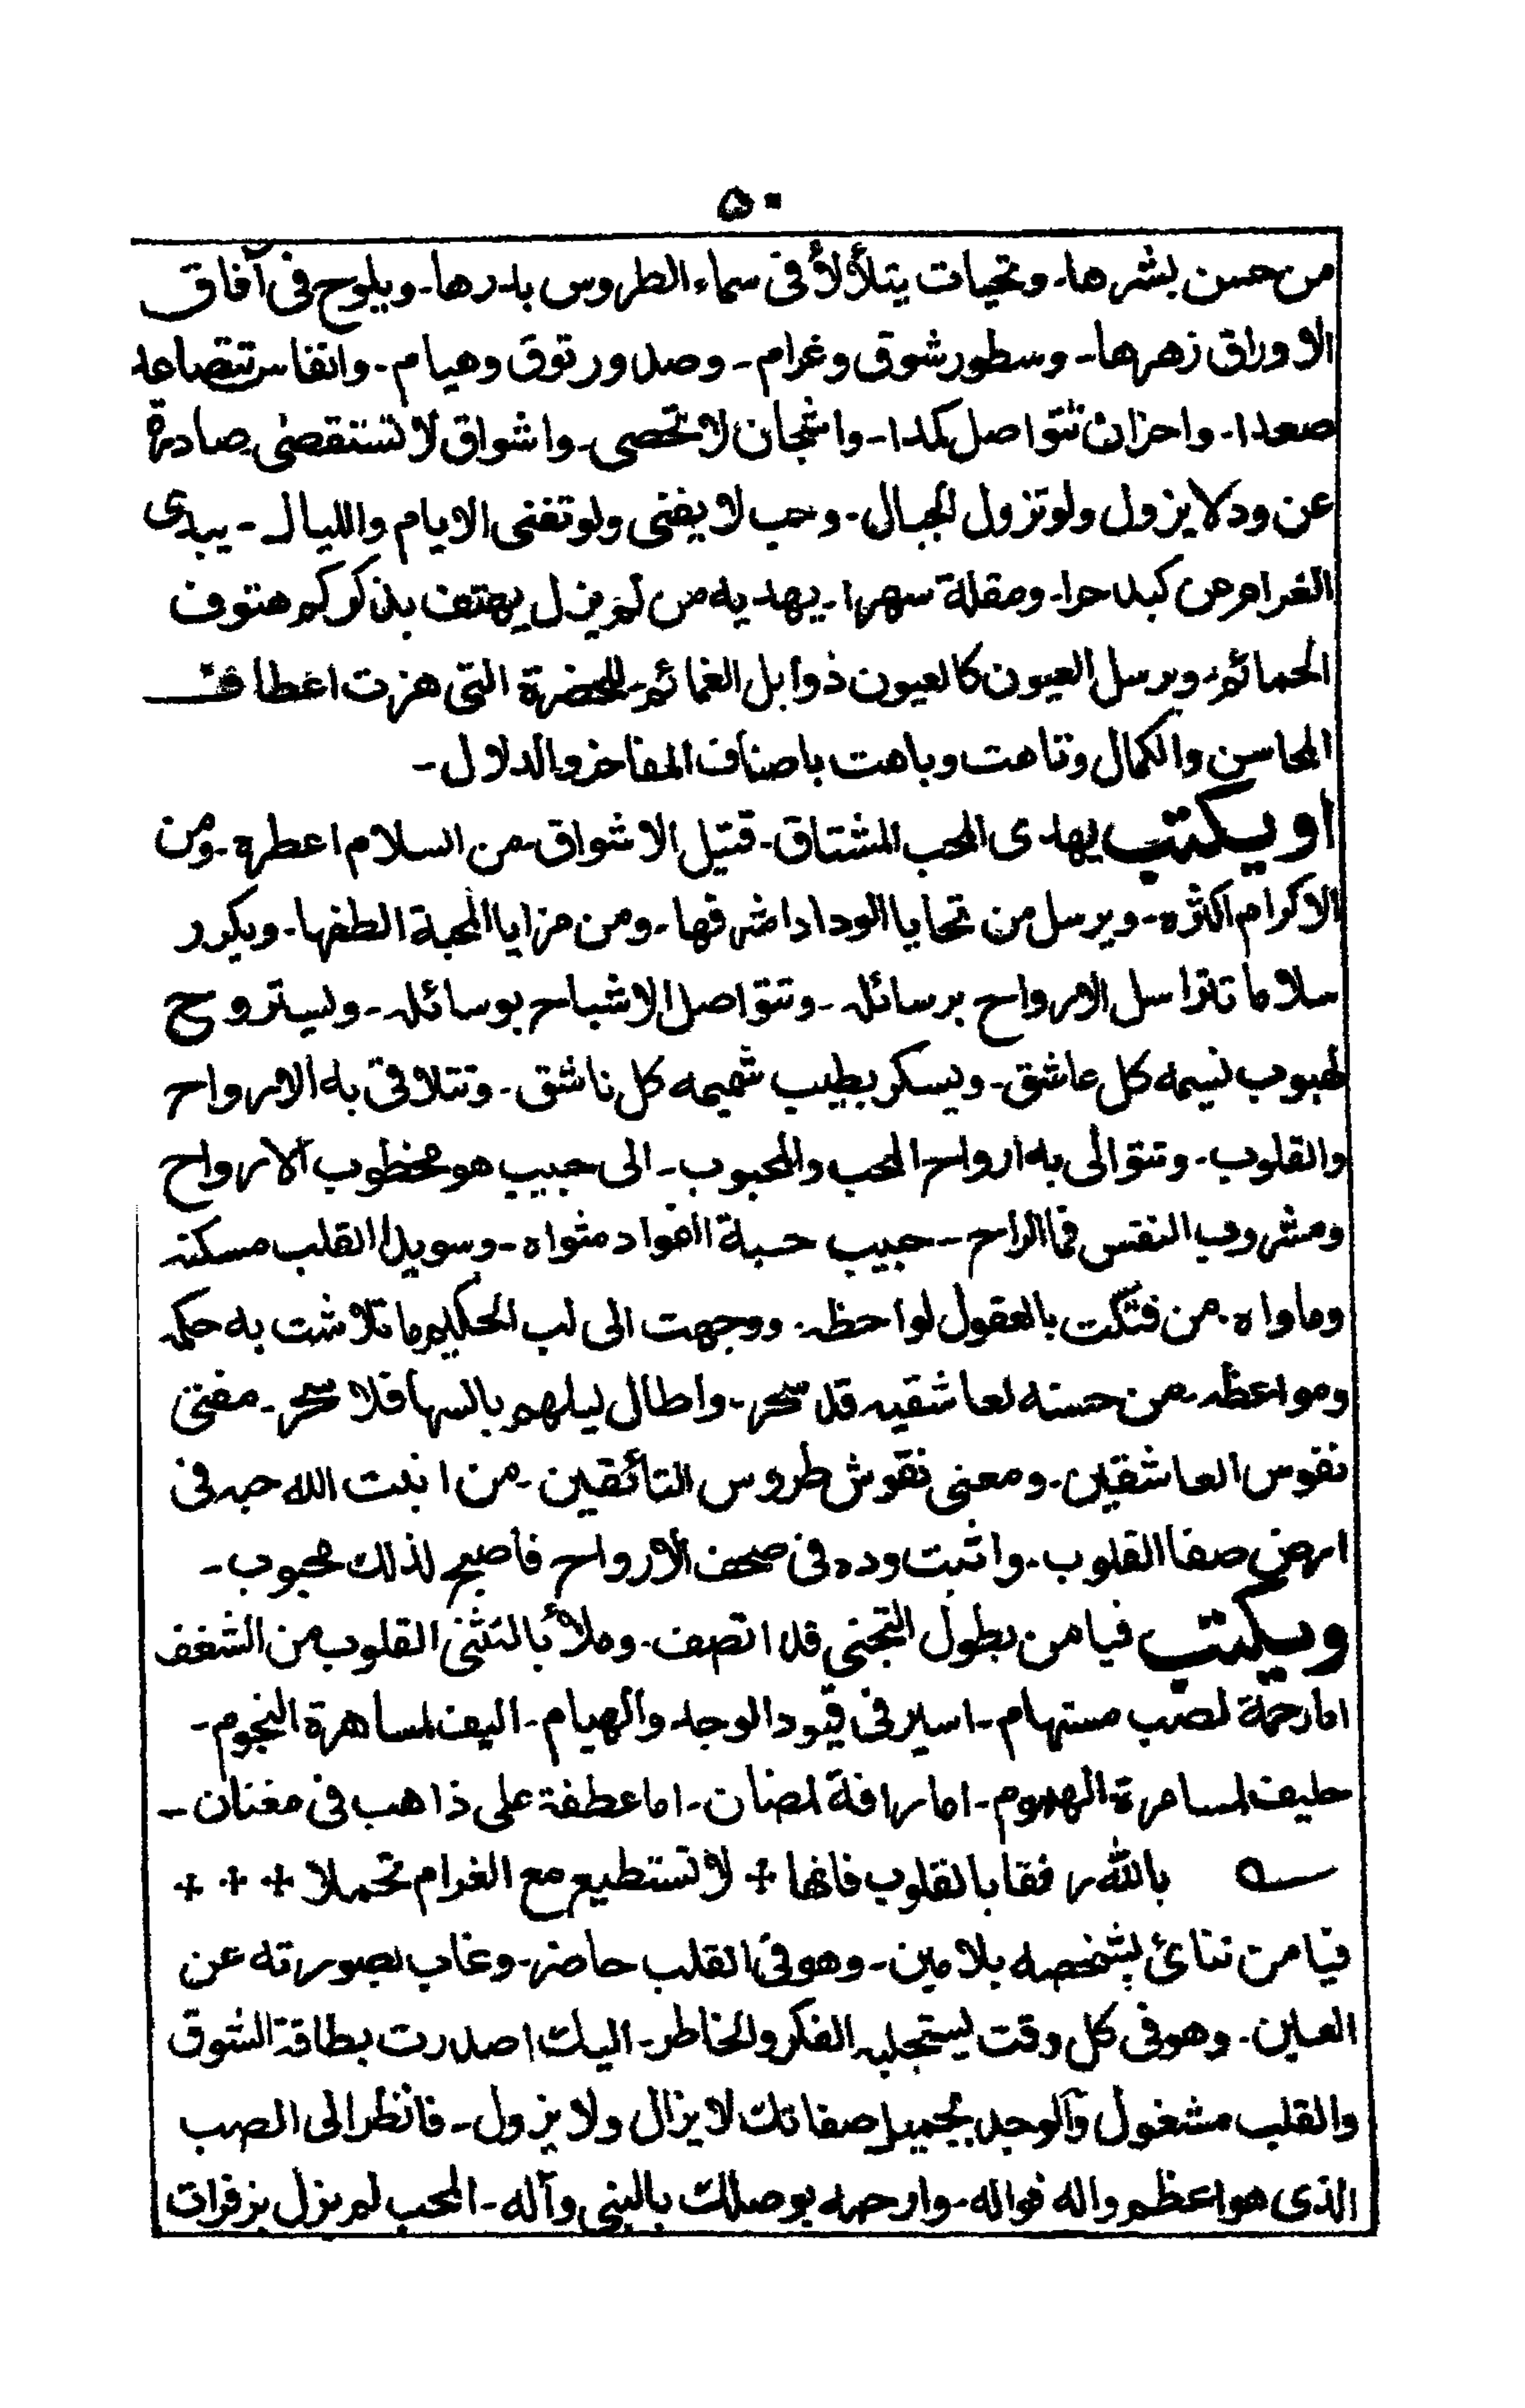 ٥٠
من حسن بشرها۔ وتحيات يتلألأ فى سماء الطروس بدرها۔ ويلوح فى آفاق
الاوراق زهرها۔ وسطور شوق وغرام۔ وصدور توق وهيام۔ وانفاس تتصاعد
صعدا۔ واحزان تتواصل كمدا۔ واشجان لا تحصى۔ واشواق لا تستقصى۔ صادرة
عن ود لا يزول ولو تزول الجبال۔ وحب لا يفنى ولو تفنى الايام والليال۔ يبدى
الغرام من كبد حرا۔ ومقلة سهرا۔ يهديه من لم يزل يهتف بذكركم هتوف
الحمائم۔ ويرسل العيون كالعيون ذوابل الغمائم۔ للحضرة التى هزت اعطاف
المحاسن والكمال وتاهت وباهت باصناف المفاخر والدلال۔
او يكتب يهدى المحب المشتاق۔ قتيل الاشواق۔ من السلام اعطره۔ ومن
الاكرام اكثره۔ ويرسل من تحايا الوداد اشرفها۔ ومن مزايا المحبة الطفها۔ ويكرر
سلاما تتراسل الارواح برسائله۔ وتتواصل الاشباح بوسائله۔ ويستروح
لهبوب نسيمه كل عاشق۔ ويسكر بطيب شميمه كل ناشق۔ وتتلاقى به الارواح
والقلوب۔ وتتوالى به ارواح المحب والمحبوب۔ الى حبيب هو مخطوب الارواح
ومشروب النفس فما الراح۔ حبيب حبة الفواد مثواه۔ وسويدا القلب مسكنه
وماواه۔ من فتكت بالعقول لواحظه۔ ووجهت الى لب الحكيم ما تلاشت به حكمه
ومواعظه۔ من حسنه لعاشقيه قد سحر۔ واطال ليلهم بالسها فلا سحر۔ مفتى
نفوس العاشقين۔ ومعنى نقوش طروس التائقين۔ من انبت الله حبه فى
ارض صفا القلوب۔ واثبت وده فى صحف الارواح فاصبح لذلك محبوب۔
ويكتب فيا من بطول التجنى قد اتصف۔ وملأ بالتثنى القلوب من الشغف
اما رحمة لصب مستهام۔ اسير فى قيود الوجد والهيام۔ اليف لمساهرة النجوم۔
حليف لمسامرة الهموم۔ اما رافة لمضان۔ اما عطفة على ذاهب فى مغنان۔
بالله رفقا بالقلوب فانها + لا تستطيع مع الغرام تحملا + + +
فيا من تنائ بشخصه بلا مين۔ وهو فى القلب حاضر۔ وغاب بصورته عن
العين۔ وهو فى كل وقت يستجليه الفكر والخاطر۔ اليك اصدرت بطاقة الشوق
والقلب مشغول والوجد بجميل صفاتك لا يزال ولا يزول۔ فانظر الى الصب
الذى هو اعظم واله فواله۔ وارحمه بوصلك بالنبى وآله۔ المحب لم يزل بزفرات